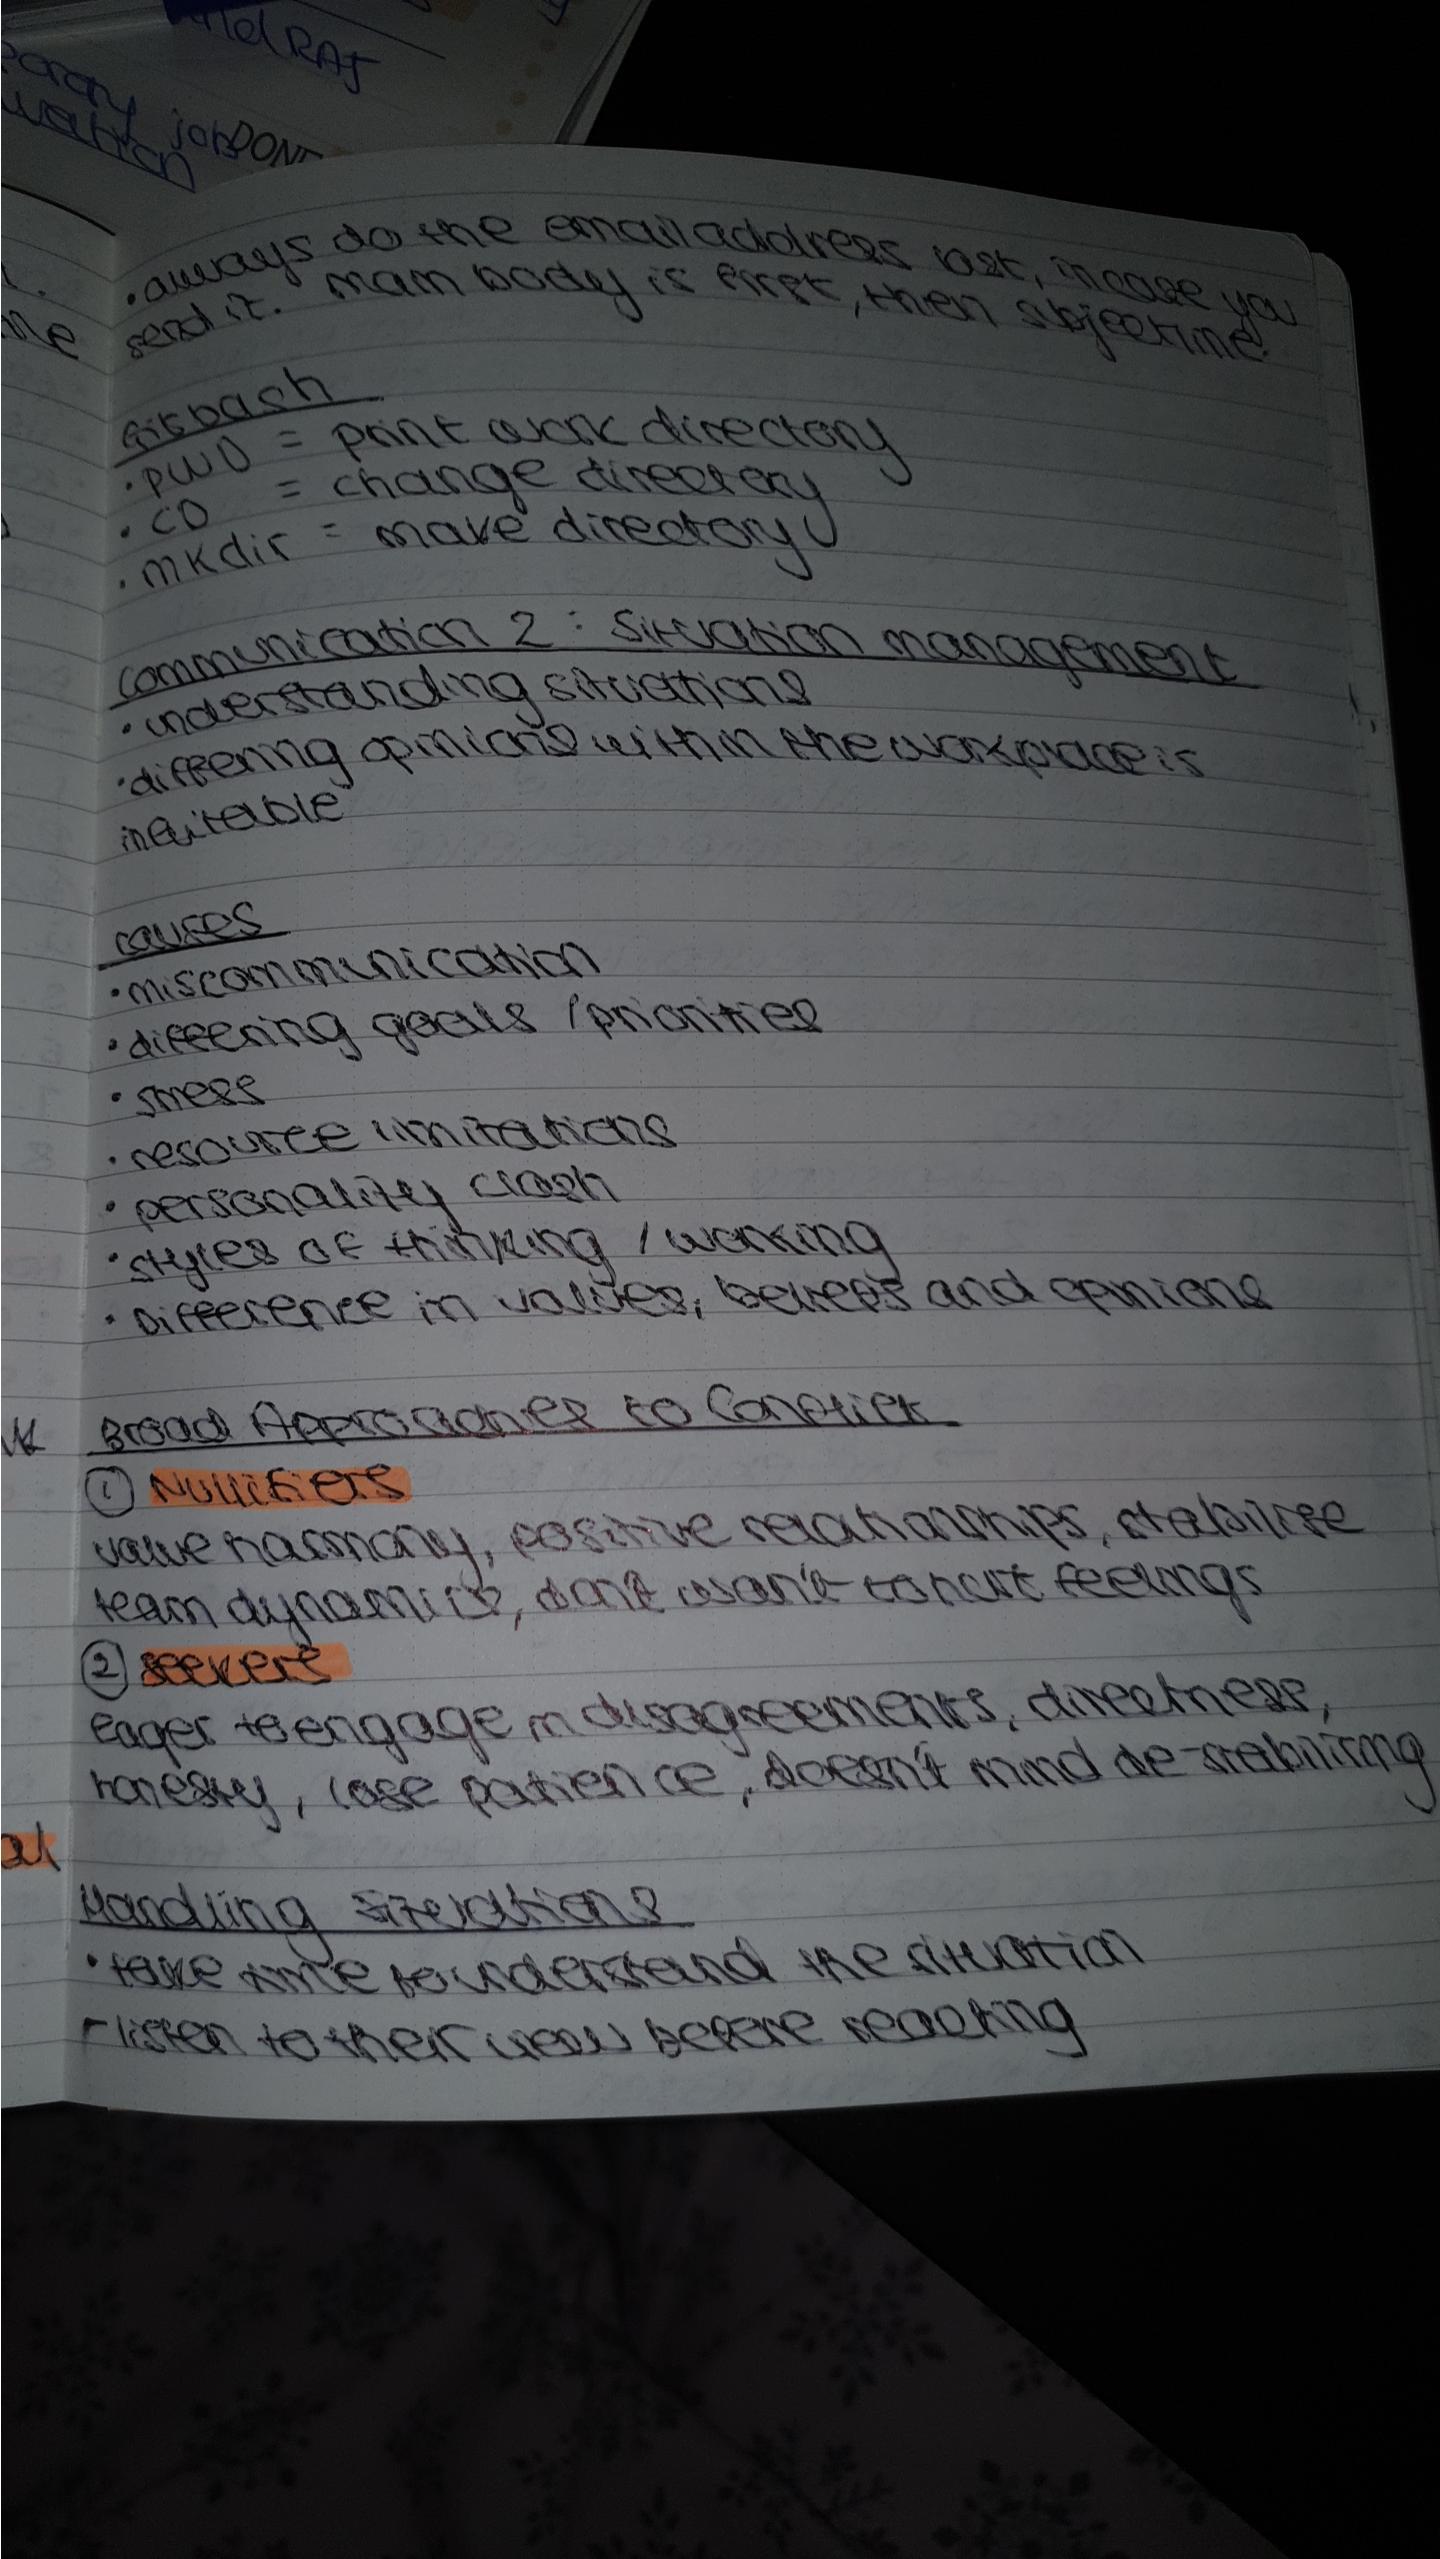 nd RAJ
porary job DONE
wation
• always do the email address last, incase you
send it. Main body is first, then subjectline.
Gitbash
• PWD = print work directory
• CD = change directory
• mkdir = make directory
Communication 2 : Situation management
• understanding situations
• differing opinions within the workplace is
inevitable
causes
• miscommunication
• differing goals / priorities
• stress
• resource limitations
• personality clash
• styles of thinking / working
• Difference in values, beliefs and opinions
Broad Approaches to Conflict
① Nullifiers
value harmony, positive relationships, stabilise
team dynamics, don't want to hurt feelings
② seekers
Eager to engage in disagreements, directness,
honesty, lose patience, doesn't mind de-stabilising
al
Handling situations
• take time to understand the situation
- listen to their view before reacting